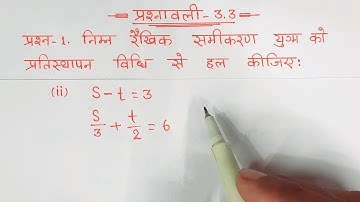 प्रश्नावली - 3.3
प्रश्न- 1. निम्न रैखिक समीकरण युग्म को
प्रतिस्थापन विधि से हल कीजिए:
(ii) s - t = 3
s/3 + t/2 = 6